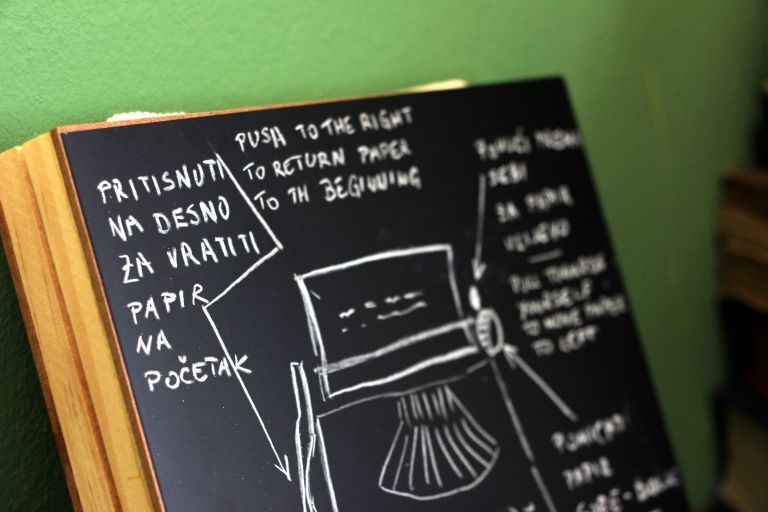 PRITISNUTI
NA DESNO
ZA VRATITI
PAPIR
NA
POČETAK
PUSH TO THE RIGHT
TO RETURN PAPER
TO TH BEGINNING
SEBI
ZA PAPIR
TO MOVE PAPER
TO LEFT
POMICATI
PAPIR
GORE-